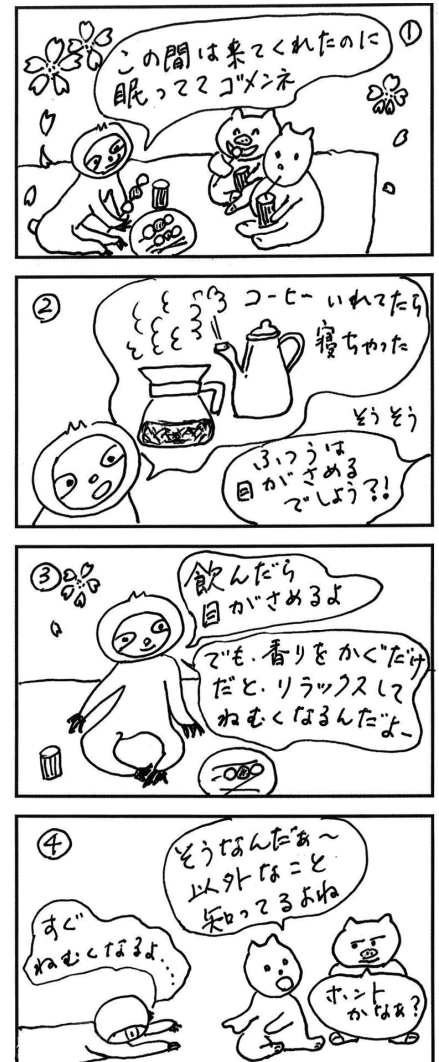 ①
この間は来てくれたのに
眠っててゴメンネ
②
コーヒー いれてたら
寝ちゃった
そうそう
ふつうは
目がさめる
でしょう?!
③
飲んだら
目がさめるよ
でも、香りをかぐだけ
だと、リラックスして
ねむくなるんだよー
④
そうなんだぁ〜
以外なこと
知ってるよね
すぐ
ねむくなるよ...
ホント
かなぁ?